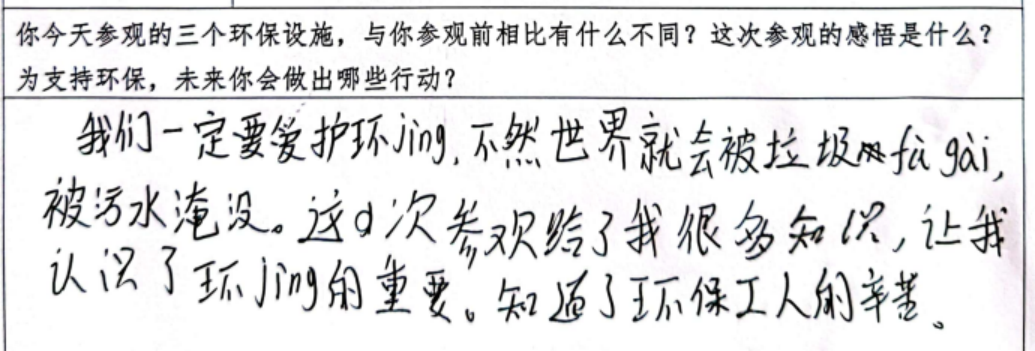 你今天参观的三个环保设施，与你参观前相比有什么不同？这次参观的感悟是什么？
为支持环保，未来你会做出哪些行动？
我们一定要爱护环jing，不然世界就会被垃圾fù gài，
被污水淹没。这次参观给了我很多知识，让我
认识了环jing的重要。知道了环保工人的辛苦。